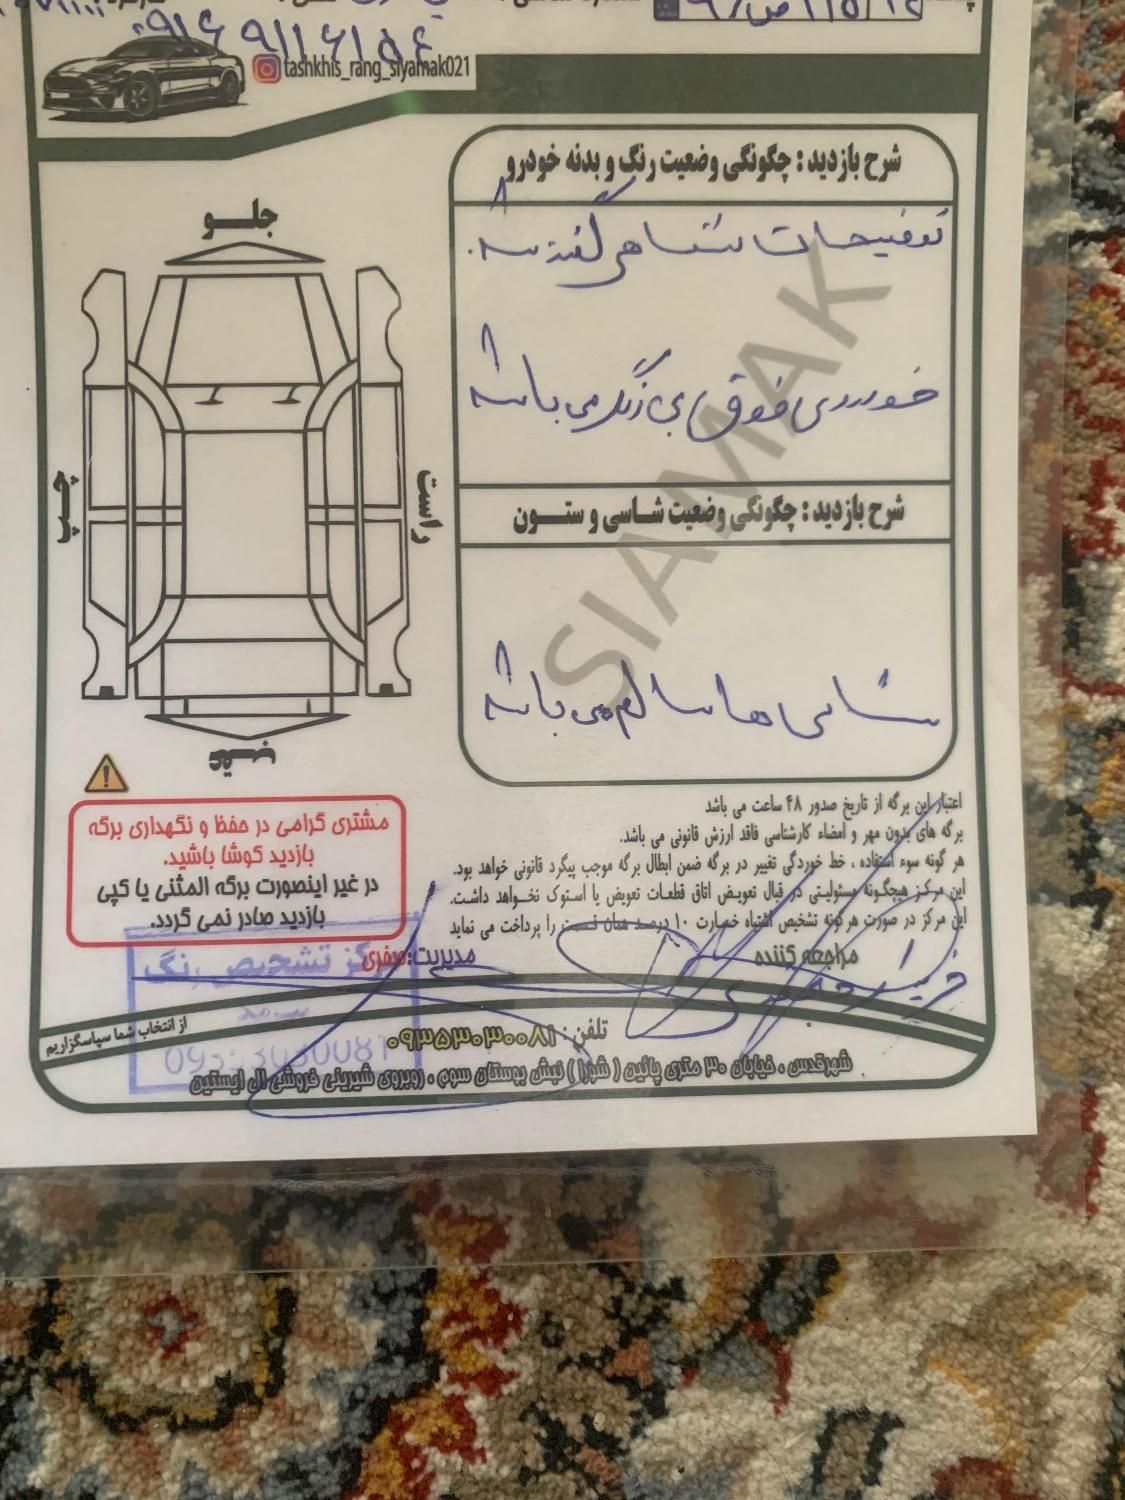 tashkhis_rang_siyamak021
شرح بازدید : چگونگی وضعیت رنگ و بدنه خودرو
توضیحات شفاهی گفته شد.
خودروی فوق بی رنگ می باشد
شرح بازدید : چگونگی وضعیت شاسی و ستون
شاسی ها سالم می باشد
SIAMAK
جلو
چپ
راست
عقب
مشتری گرامی در حفظ و نگهداری برگه
بازدید کوشا باشید.
در غیر اینصورت برگه المثنی یا کپی
بازدید صادر نمی گردد.
اعتبار این برگه از تاریخ صدور ۴۸ ساعت می باشد
برگه های بدون مهر و امضاء کارشناسی فاقد ارزش قانونی می باشد.
هر گونه سوء استفاده ، خط خوردگی تغییر در برگه ضمن ابطال برگه موجب پیگرد قانونی خواهد بود.
این مرکز هیچگونه مسئولیتی در قبال تعویض اتاق قطعات تعویض یا استوک نخواهد داشت.
این مرکز در صورت هرگونه تشخیص اشتباه خسارت ۱۰ درصد همان قسمت را پرداخت می نماید
مراجعه کننده
مدیریت: صفری
مرکز تشخیص رنگ
09353030081
از انتخاب شما سپاسگزاریم
تلفن : ۰۹۳۵۳۰۳۰۰۸۱
شهرقدس ، خیابان ۳۰ متری پائین ( شورا ) نبش بوستان سوم ، روبروی شیرینی فروشی ال ایستین